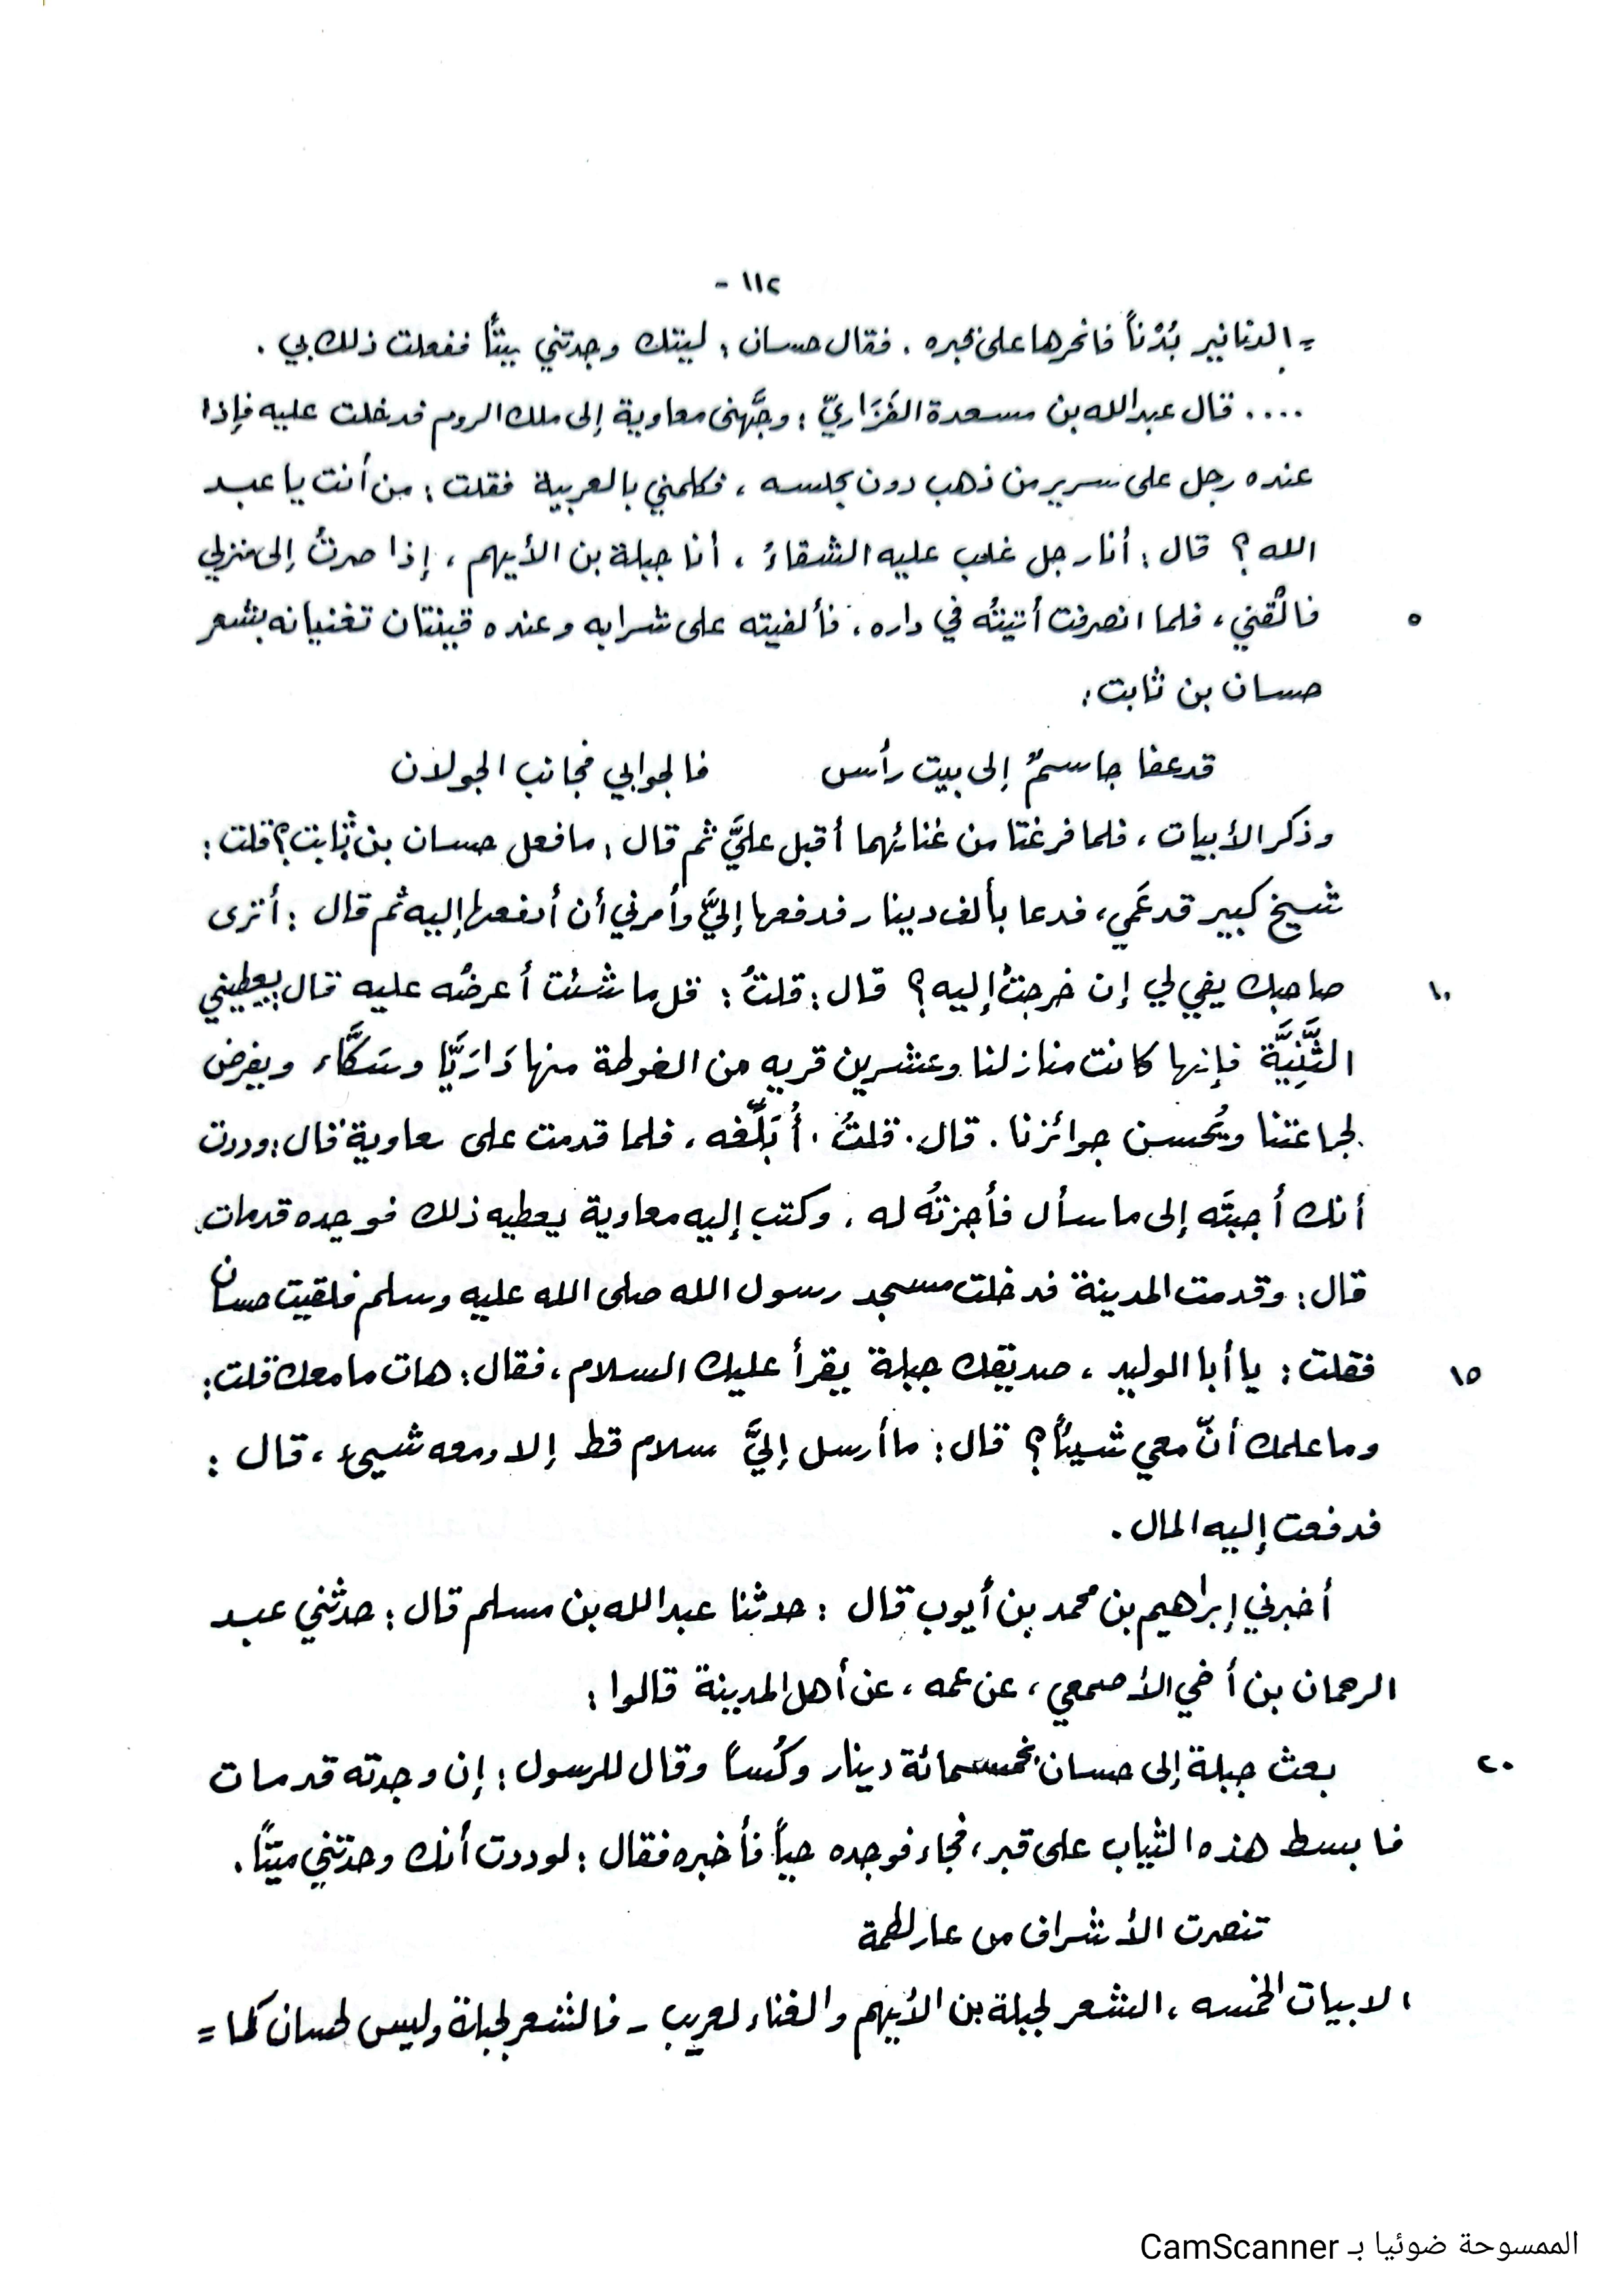 ١١٢ -
= الدنانير بُدْناً فانحرها على قبره . فقال حسان : ليتك وجدتني ميتاً ففعلت ذلك بي .
.... قال عبدالله بن مسعدة الفَزَاريّ : وجَّهني معاوية إلى ملك الروم فدخلت عليه فإذا
عنده رجل على سرير من ذهب دون مجلسه ، فكلمني بالعربية فقلت : من أنت يا عبد
الله ؟ قال : أنا رجل غلب عليه الشقاءُ ، أنا جبلة بن الأيهم ، إذا صرتُ إلى منزلي
٥ فالْقني ، فلما انصرفت أتيتُه في داره ، فألفيته على شرابه وعنده قينتان تغنيانه بشعر
حسان بن ثابت :
قد عفا جاسمٌ إلى بيت رأس فالجوابي فجانب الجولان
وذكر الأبيات ، فلما فرغتا من غنائهما أقبل عليَّ ثم قال : ما فعل حسان بن ثابت ؟ قلت :
شيخ كبير قد عَمي ، فدعا بألف دينار فدفعها إليَّ وأمرني أن أدفعها إليه ثم قال : أترى
١٠ صاحبك يفي لي إن خرجتُ إليه ؟ قال : قلتُ : قل ما شئت أعرضْه عليه قال : يعطيني
الثَّنِيَّة فإنها كانت منازلنا وعشرين قريه من الغوطة منها دَارَيَّا وسَكَّاء ويفرض
لجماعتنا ويُحسن جوائزنا . قال . قلتُ . أُبَلِّغه ، فلما قدمت على معاوية قال : وددت
أنك أجبتَه إلى ما سأل فأجزتُه له . وكتب إليه معاوية يعطيه ذلك فوجده قد مات .
قال : وقدمت المدينة فدخلت مسجد رسول الله صلى الله عليه وسلم فلقيت حسان
١٥ فقلت : يا أبا الوليد ، صديقك جبلة يقرأ عليك السلام ، فقال : هات ما معك قلت :
وما علمك أنّ معي شيئاً ؟ قال : ما أرسل إليَّ سلام قط إلا ومعه شيىء ، قال :
فدفعت إليه المال .
أخبرني إبراهيم بن محمد بن أيوب قال : حدثنا عبدالله بن مسلم قال : حدثني عبد
الرحمان بن أخي الأصمعي ، عن عمه ، عن أهل المدينة قالوا :
٢٠ بعث جبلة إلى حسان بخمسمائة دينار وكُساً وقال للرسول : إن وجدته قد مات
فابسط هذه الثياب على قبر ، فجاء فوجده حياً فأخبره فقال : لوددت أنك وجدتني ميتاً .
تنصرت الأشراف من عار لطمة
الابيات الخمسه ، الشعر لجبلة بن الأيهم والغناء لعريب - فالشعر لجبلة وليس لحسان كما =
الممسوحة ضوئيا بـ CamScanner